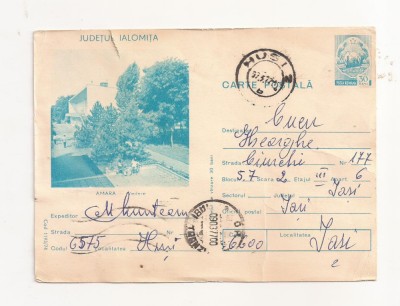 JUDEȚUL IALOMIȚA
HUȘI 2
CARTE POȘTALĂ
AMARA
Expeditor M Munteanu
Strada Nr.
Codul 6575 Localitatea Huși
Destinatar Cucu
Gheorghe
Strada Ciurchi Nr. 177
Blocul 57 Scara 2 Etajul III apart 6
Sectorul Județul Iași
Iași
6600 Localitatea Iași